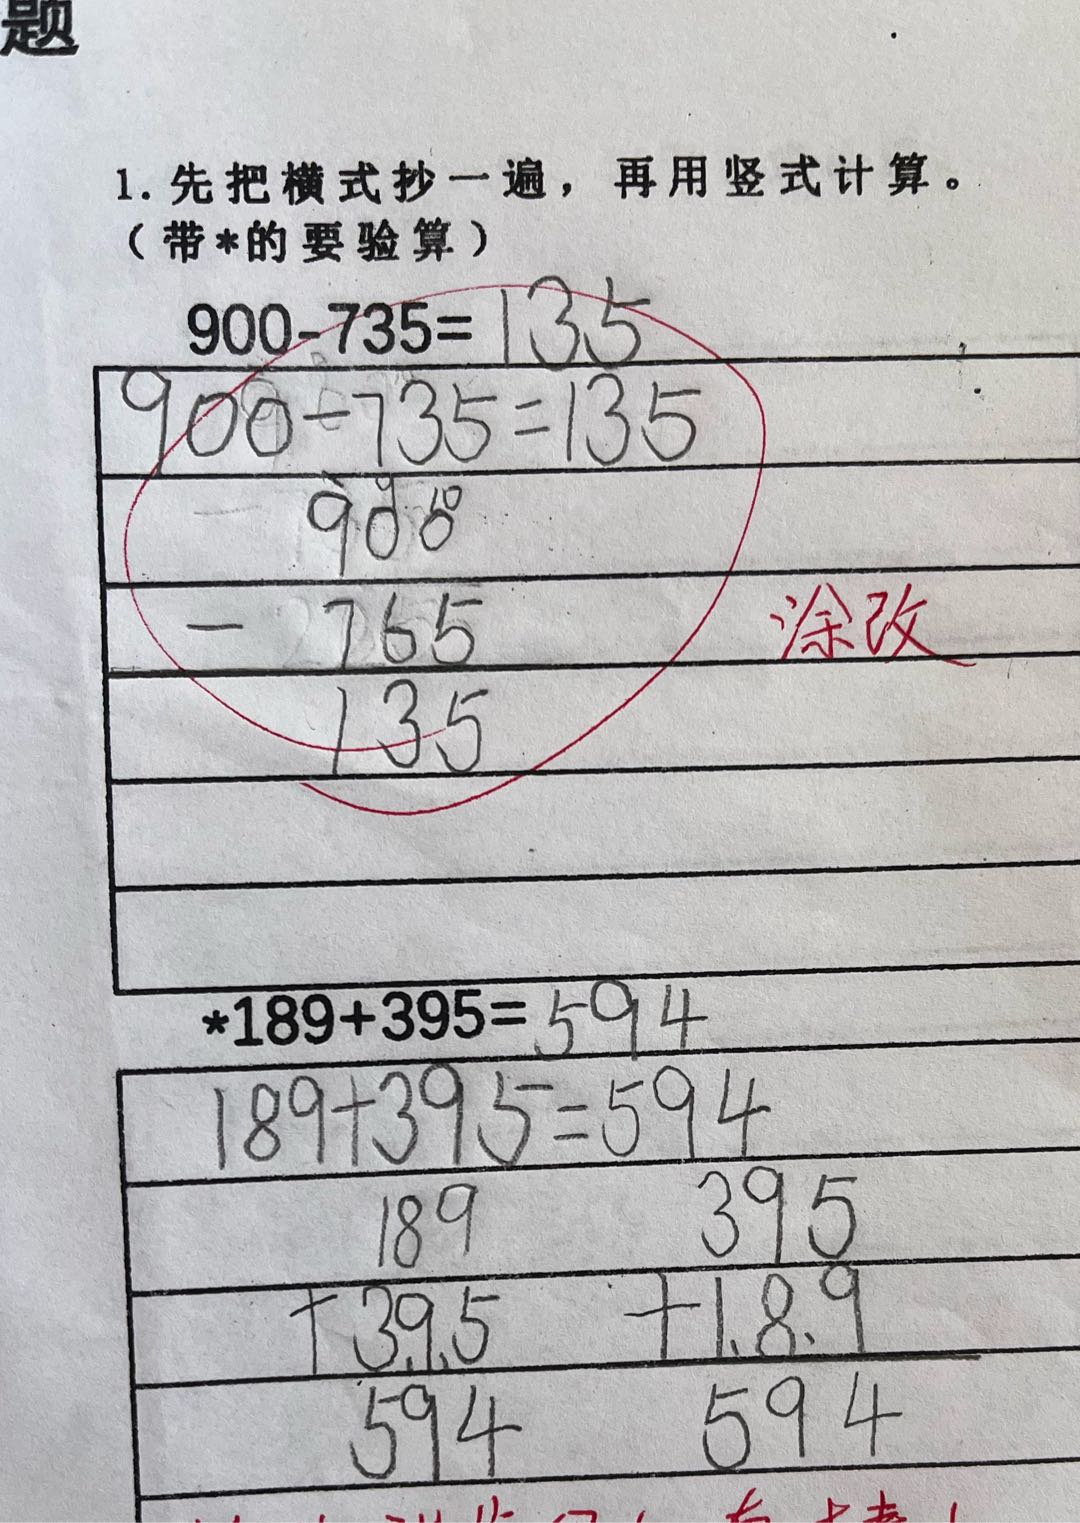 题
1.先把横式抄一遍，再用竖式计算。
（带*的要验算）
900-735=135
900-735=135
900
- 765
135
涂改
*189+395=594
189+395=594
189 395
+395 +189
594 594